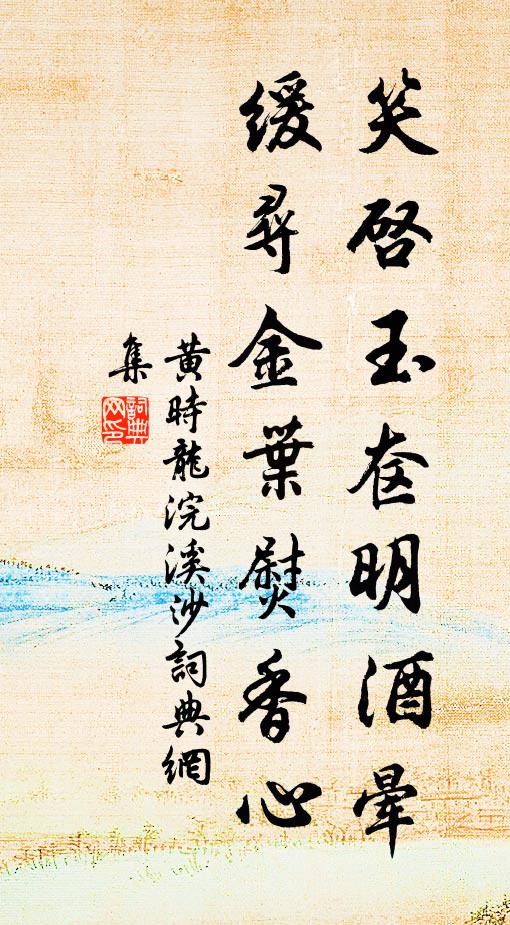 笑啓玉奁明酒暈
緩尋金葉熨香心
黄時龍浣溪沙詞典網
集
詞典
网印